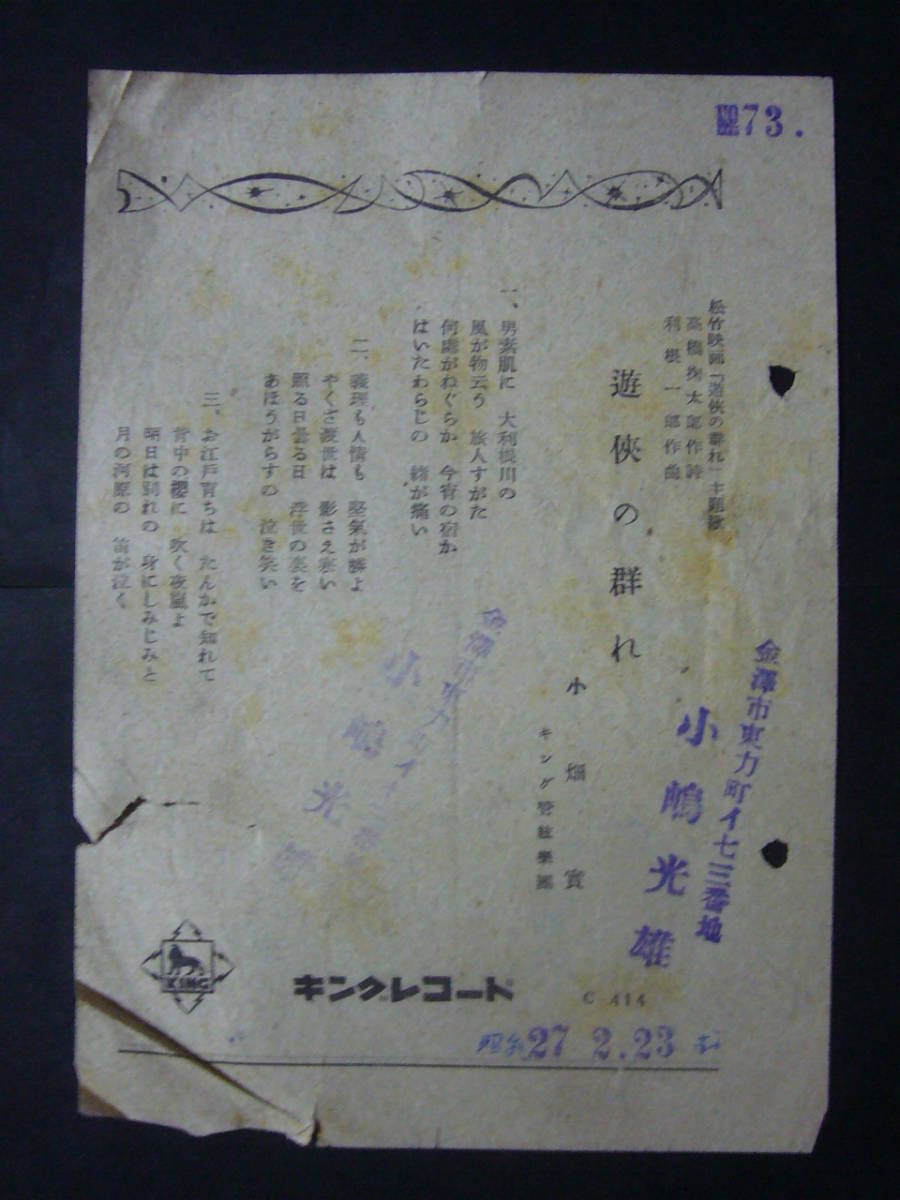 №73.
松竹映画「遊侠の群れ」主題歌
高橋掬太郎作詩
利根一郎作曲
遊侠の群れ
小畑實
キング管絃樂團
一、男素肌に 大利根川の
風が物云う 旅人すがた
何處がねぐらか 今宵の宿か
はいたわらじの 緒が痛い
二、義理も人情も 堅氣が勝よ
やくざ渡世は 影さえ寒い
照る日曇る日 浮世の裏を
あほうがらすの 泣き笑い
三、お江戸育ちは たんかで知れて
背中の櫻に 吹く夜嵐よ
明日は別れの 身にしみじみと
月の河原の 笛が泣く
金澤市東力町イ七三番地
小嶋光雄
金澤市東力町イ七三番地
小嶋光雄
KING
キングレコード
C 414
昭和27 2.23